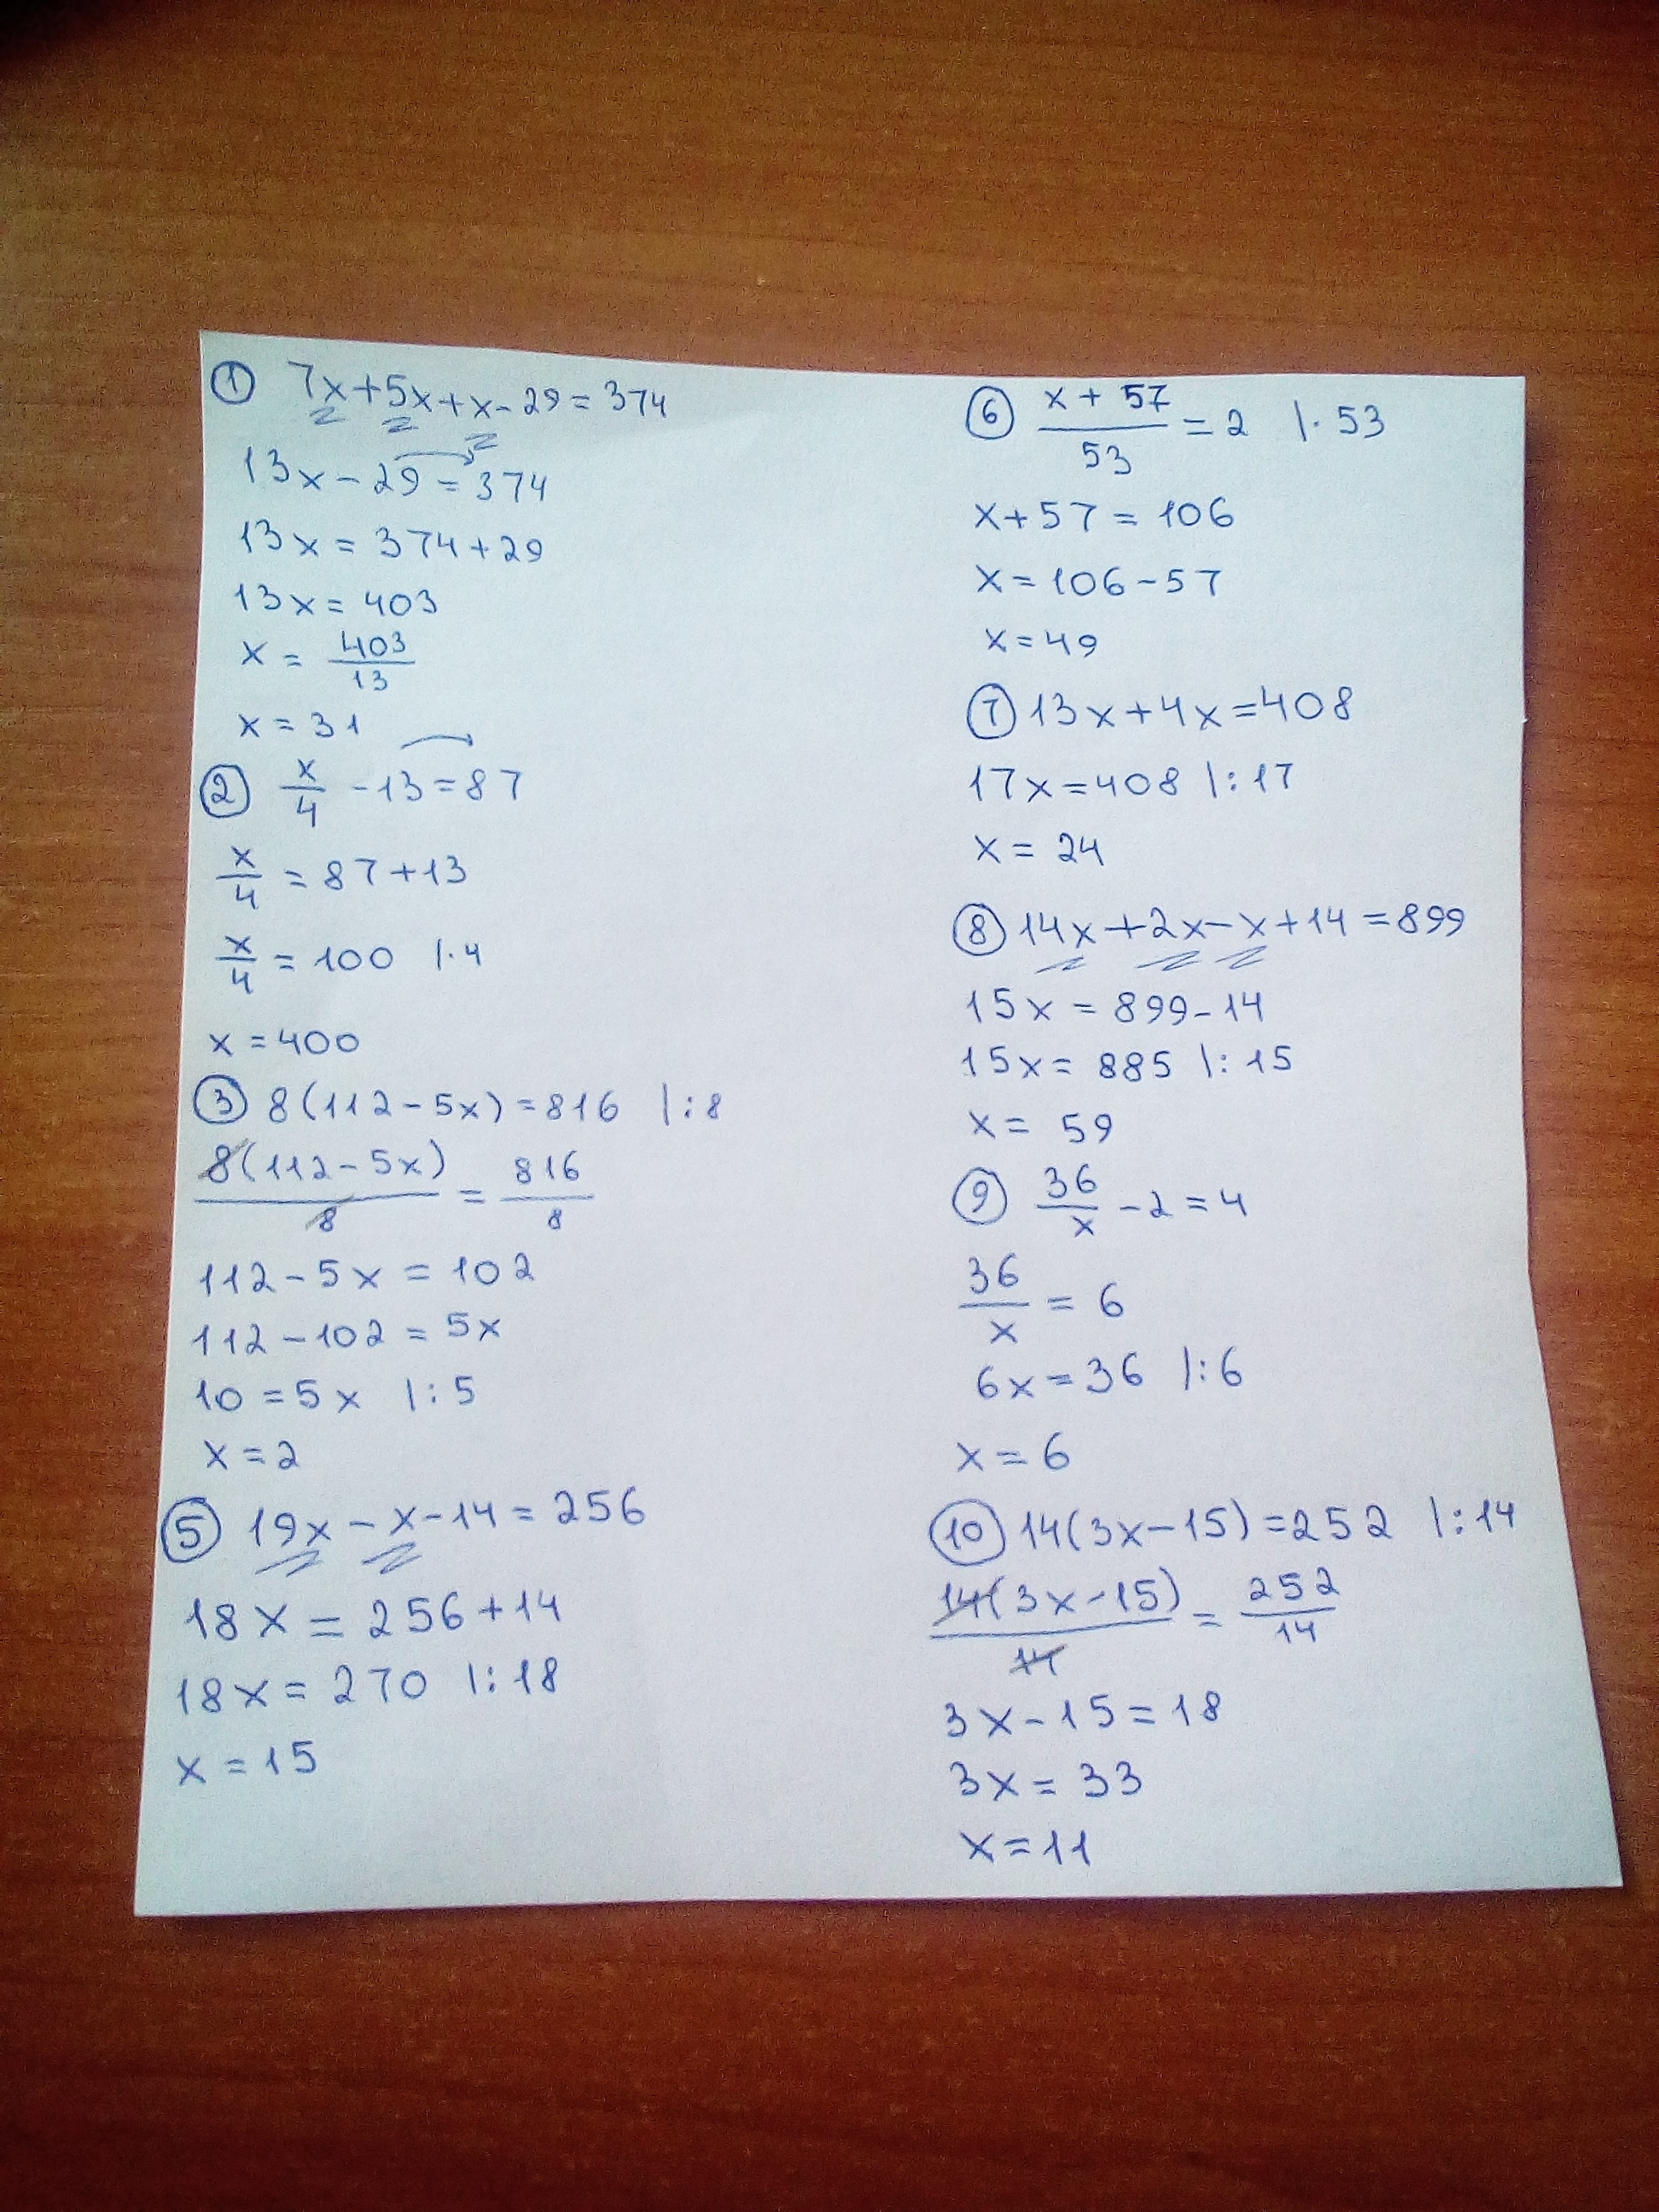 ① 7x+5x+x-29=374
13x-29=374
13x=374+29
13x=403
x=403/13
x=31
② x/4-13=87
x/4=87+13
x/4=100 |·4
x=400
③ 8(112-5x)=816 |:8
8(112-5x)/8=816/8
112-5x=102
112-102=5x
10=5x |:5
x=2
⑤ 19x-x-14=256
18x=256+14
18x=270 |:18
x=15
⑥ (x+57)/53=2 |·53
x+57=106
x=106-57
x=49
⑦ 13x+4x=408
17x=408 |:17
x=24
⑧ 14x+2x-x+14=899
15x=899-14
15x=885 |:15
x=59
⑨ 36/x-2=4
36/x=6
6x=36 |:6
x=6
⑩ 14(3x-15)=252 |:14
14(3x-15)/14=252/14
3x-15=18
3x=33
x=11